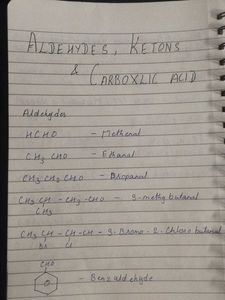 ALDEHYDES, KETONS
& CARBOXLIC ACID
Aldehydes
HCHO - Methenal
CH3 CHO - Ethanal
CH3 CH2 CHO - Propanal
CH3 CH - CH2 - CHO - 3-methy butanal
CH3
CH3 CH - CH - CH - 3-Bromo-2-Chloro butanal
Br Cl
CHO
- Benzaldehyde